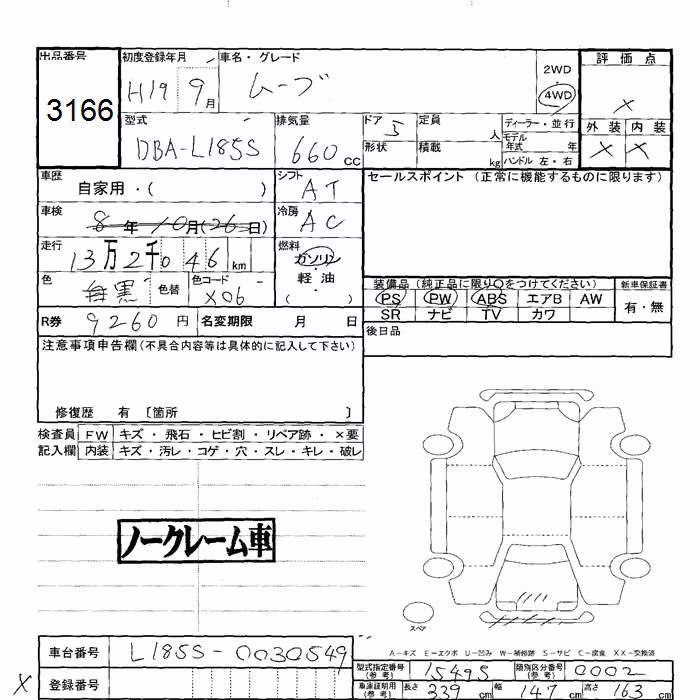 出品番号 3166
初度登録年月 H19 9月
車名・グレード ムーブ
2WD
4WD
評価点 ×
外装 × 内装 ×
型式 DBA-L185S
排気量 660 CC
ドア 5
形状
定員 人
積載 kg
ディーラー・並行
モデル年式 年
ハンドル 左・右
車歴 自家用・( )
シフト AT
車検 8年10月(26日)
冷房 AC
走行 13万2千046 km
燃料 ガソリン・軽油 ( )
色 黒 色替 色コード X06
R券 9260円 名変期限 月 日
セールスポイント (正常に機能するものに限ります)
装備品 (純正品に限り○をつけてください) 新車保証書
PS PW ABS エアB AW 有・無
SR ナビ TV カワ
後日品
注意事項申告欄 (不具合内容等は具体的に記入して下さい)
修復歴 有 〔箇所 〕
検査員 FW キズ・飛石・ヒビ割・リペア跡・×要
記入欄 内装 キズ・汚レ・コゲ・穴・スレ・キレ・破レ
ノークレーム車
スペア
A-キズ E-エクボ U-凹み W-補修跡 S-サビ C-腐食 XX-交換済
車台番号 L185S-0030549
× 登録番号
型式指定番号 (参考) 15495 類別区分番号 (参考) 0002
車庫証明用 (参考) 長さ 339 cm 幅 147 cm 高さ 163 cm